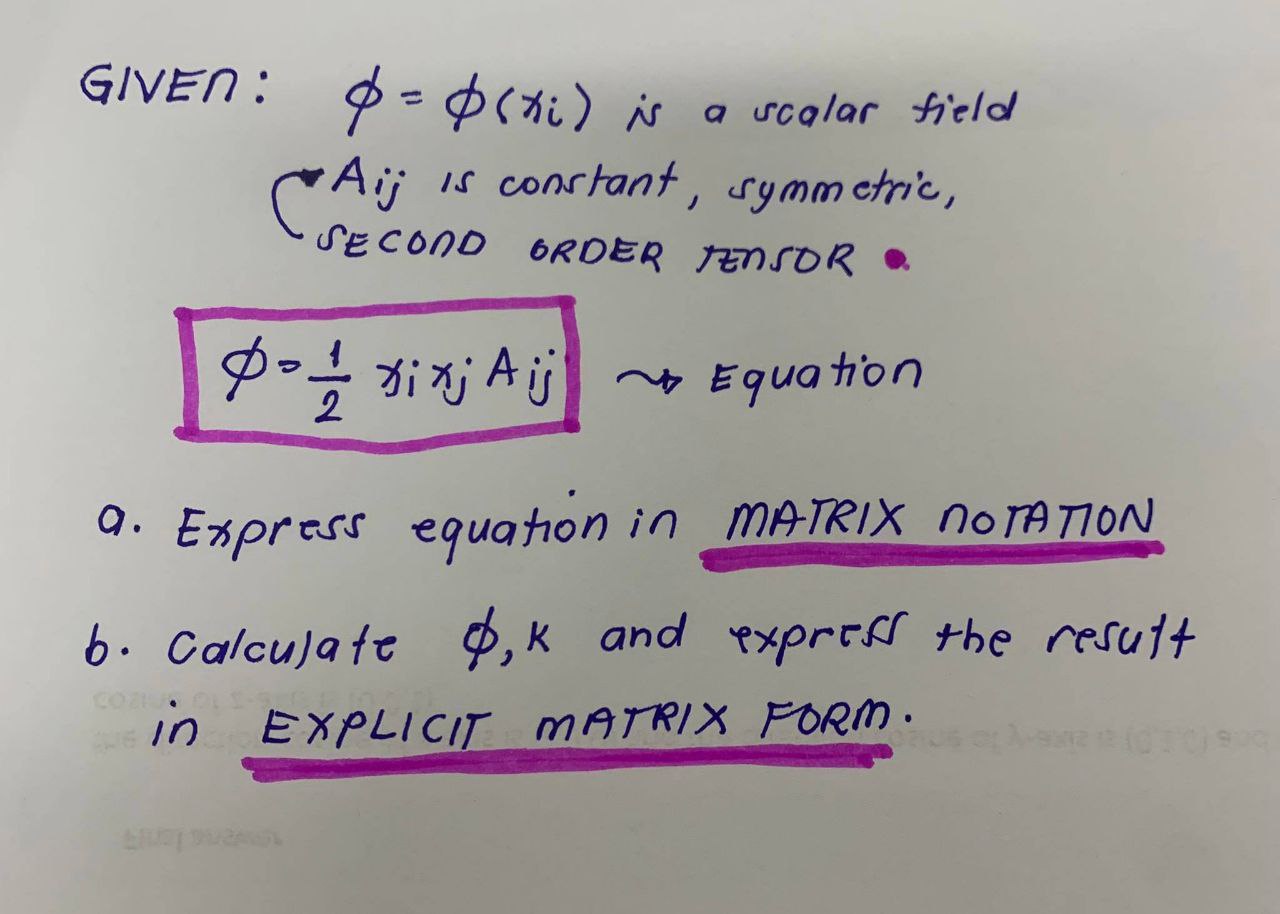 GIVEN: ϕ = ϕ(xi) is a scalar field
Aij is constant, symmetric,
SECOND ORDER TENSOR.
ϕ = 1/2 xi xj Aij → Equation
a. Express equation in MATRIX NOTATION
b. Calculate ϕ,K and express the result
in EXPLICIT MATRIX FORM.